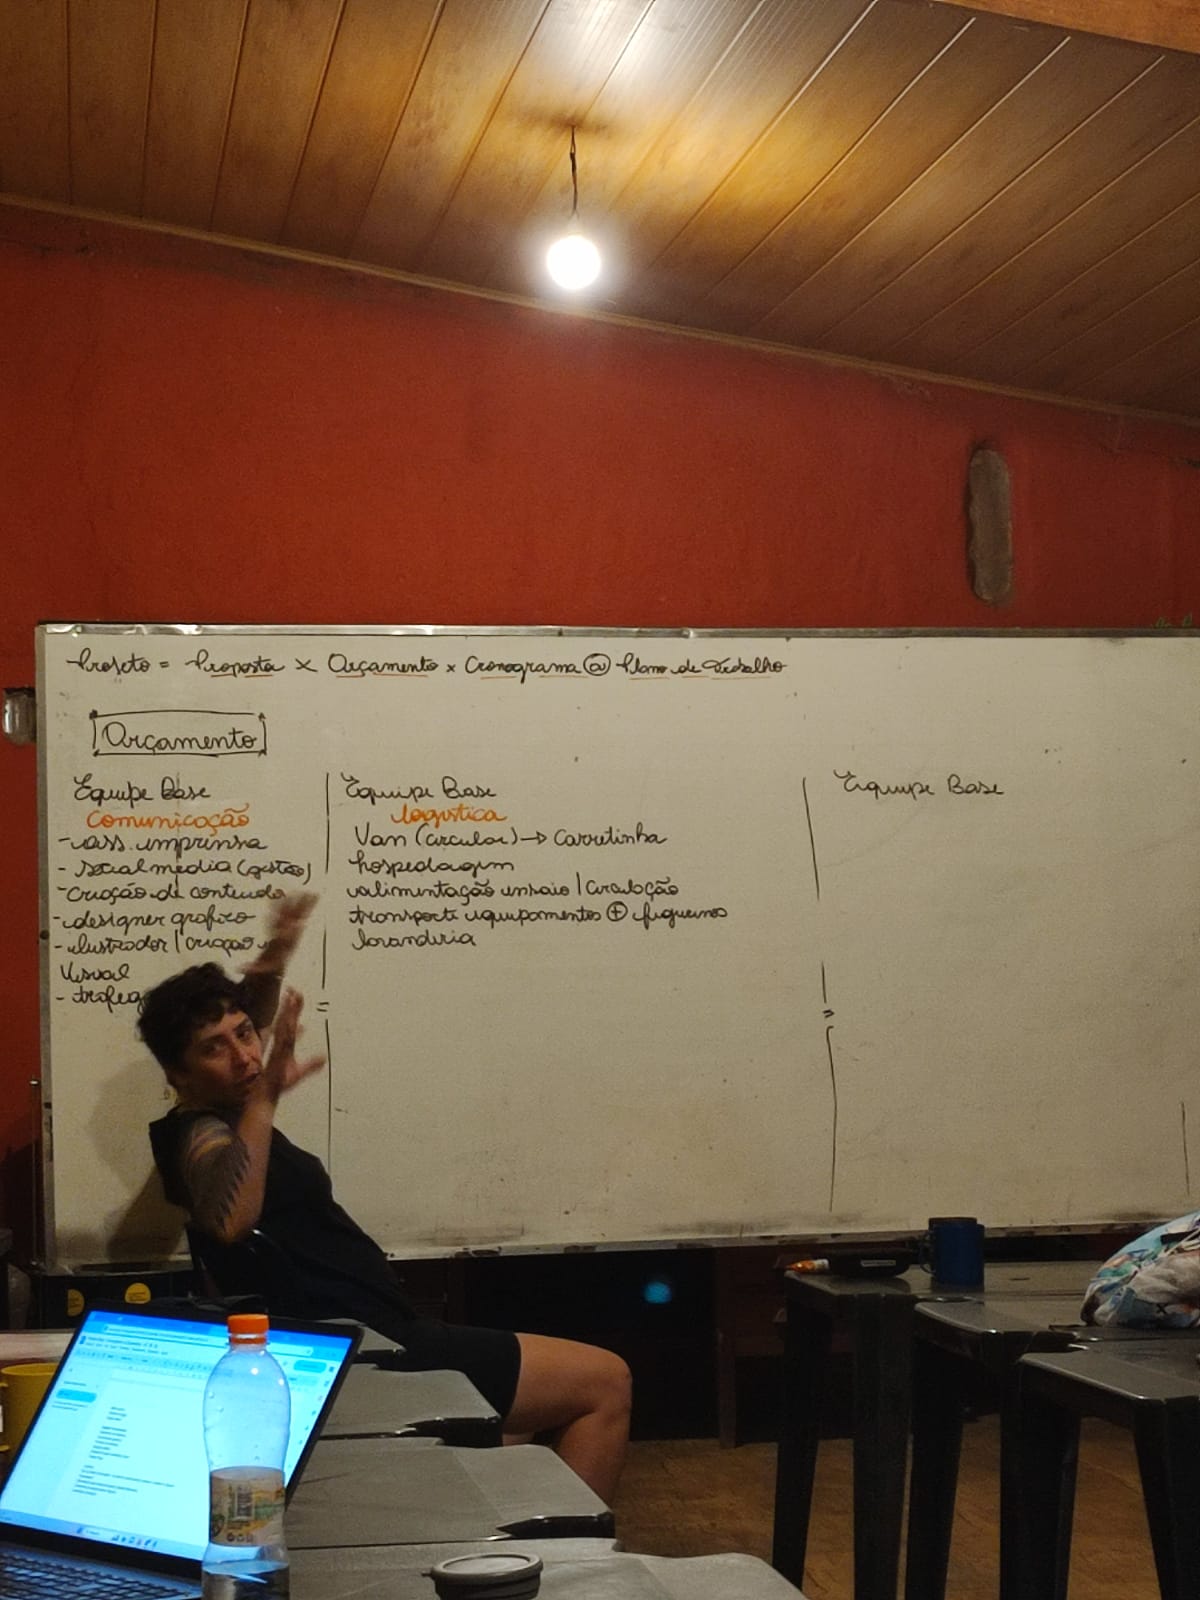 Projeto = Proposta x Orçamento x Cronograma @ Plano de Trabalho
Orçamento
Equipe Base
Comunicação
- ass. imprensa
- social media (gestão)
- Criação de conteudo
- designer grafico
- ilustrador | criação
Visual
- trafeg
Equipe Base
logistica
Van (circular) → Carretinha
hospedagem
alimentação ensaio | Circulação
transporte equipamentos + figurinos
lavanderia
Equipe Base